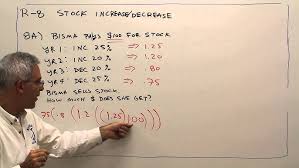 R-8 STOCK INCREASE/DECREASE
8A) BISMA PAYS $100 FOR STOCK
YR1: INC 25% => 1.25
YR2: INC 20% => 1.20
YR3: DEC 20% => .80
YR4: DEC 25% => .75
BISMA SELLS STOCK.
HOW MUCH $ DOES SHE GET?
.75(.8(1.2((1.25)100)))